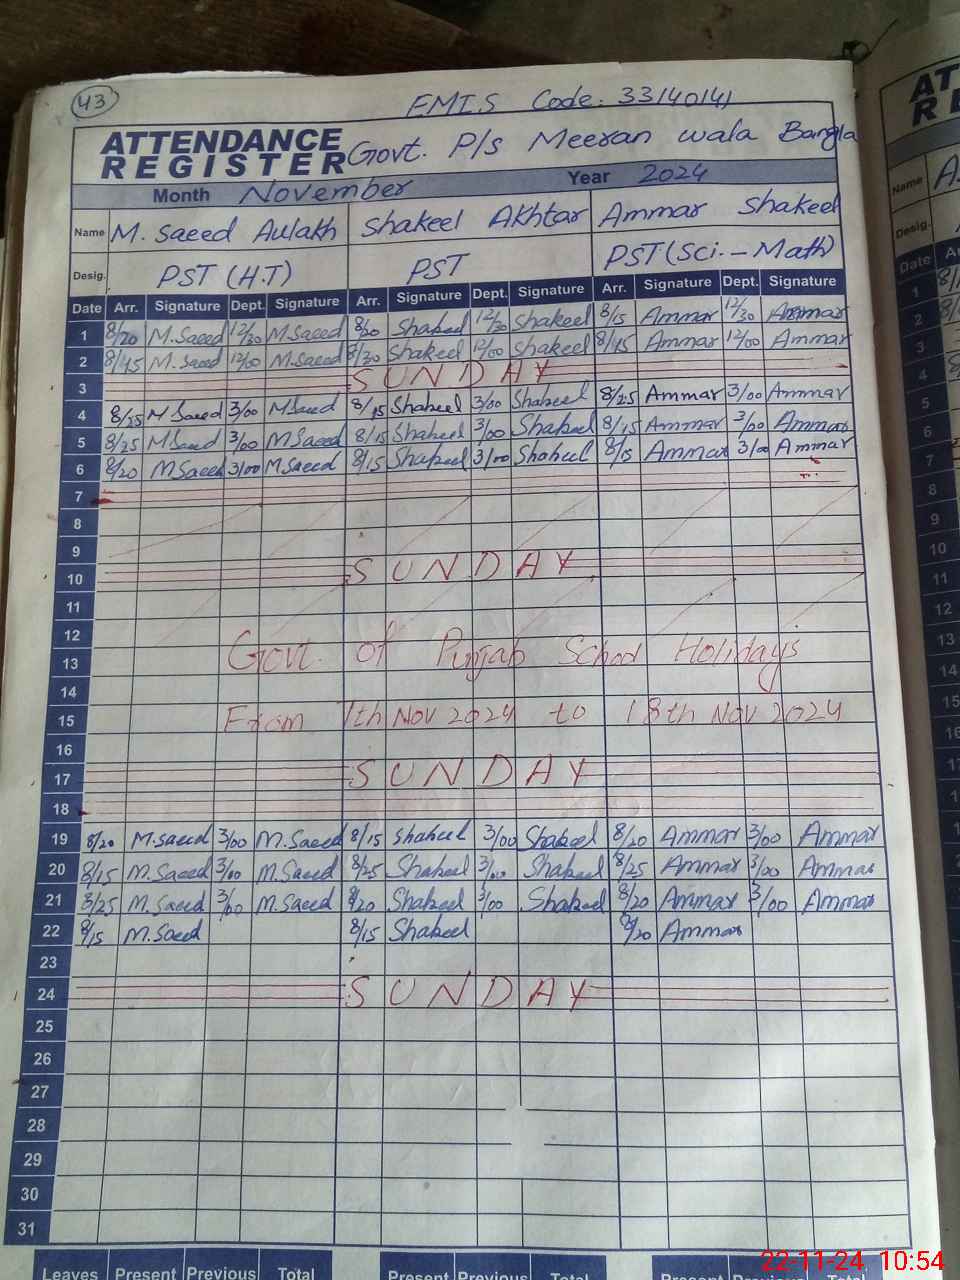 43
EMIS Code: 33140141
ATTENDANCE REGISTER Govt. P/s Meeran wala Bangla
Month November Year 2024
Name M. Saeed Aulakh Shakeel Akhtar Ammar Shakeel
Desig. PST (H.T) PST PST (Sci.-Math)
Date Arr. Signature Dept. Signature Arr. Signature Dept. Signature Arr. Signature Dept. Signature
1 8/20 M.Saeed 12/30 M.Saeed 8/20 Shakeel 12/30 Shakeel 8/15 Ammar 12/30 Ammar
2 8/45 M.Saeed 12/00 M.Saeed 8/30 Shakeel 12/00 Shakeel 8/45 Ammar 12/00 Ammar
3 SUNDAY
4 8/25 M Saeed 3/00 M Saeed 8/15 Shakeel 3/00 Shakeel 8/25 Ammar 3/00 Ammar
5 8/25 M Saeed 3/00 M Saeed 8/15 Shakeel 3/00 Shakeel 8/15 Ammar 3/00 Ammar
6 8/20 M.Saeed 3/00 M.Saeed 8/15 Shakeel 3/00 Shakeel 8/15 Ammar 3/00 Ammar
7
8
9
10 SUNDAY
11
12
13 Govt. of Punjab School Holidays
14
15 From 7th Nov 2024 to 18th Nov 2024
16
17 SUNDAY
18
19 8/20 M.Saeed 3/00 M.Saeed 8/15 Shakeel 3/00 Shakeel 8/20 Ammar 3/00 Ammar
20 8/15 M.Saeed 3/00 M.Saeed 8/25 Shakeel 3/00 Shakeel 8/25 Ammar 3/00 Ammar
21 8/25 M.Saeed 3/00 M.Saeed 8/20 Shakeel 3/00 Shakeel 8/20 Ammar 3/00 Ammar
22 8/15 M.Saeed 8/15 Shakeel 8/20 Ammar
23
24 SUNDAY
25
26
27
28
29
30
31
Leaves Present Previous Total Present Previous Total Present Total
22-11-24 10:54